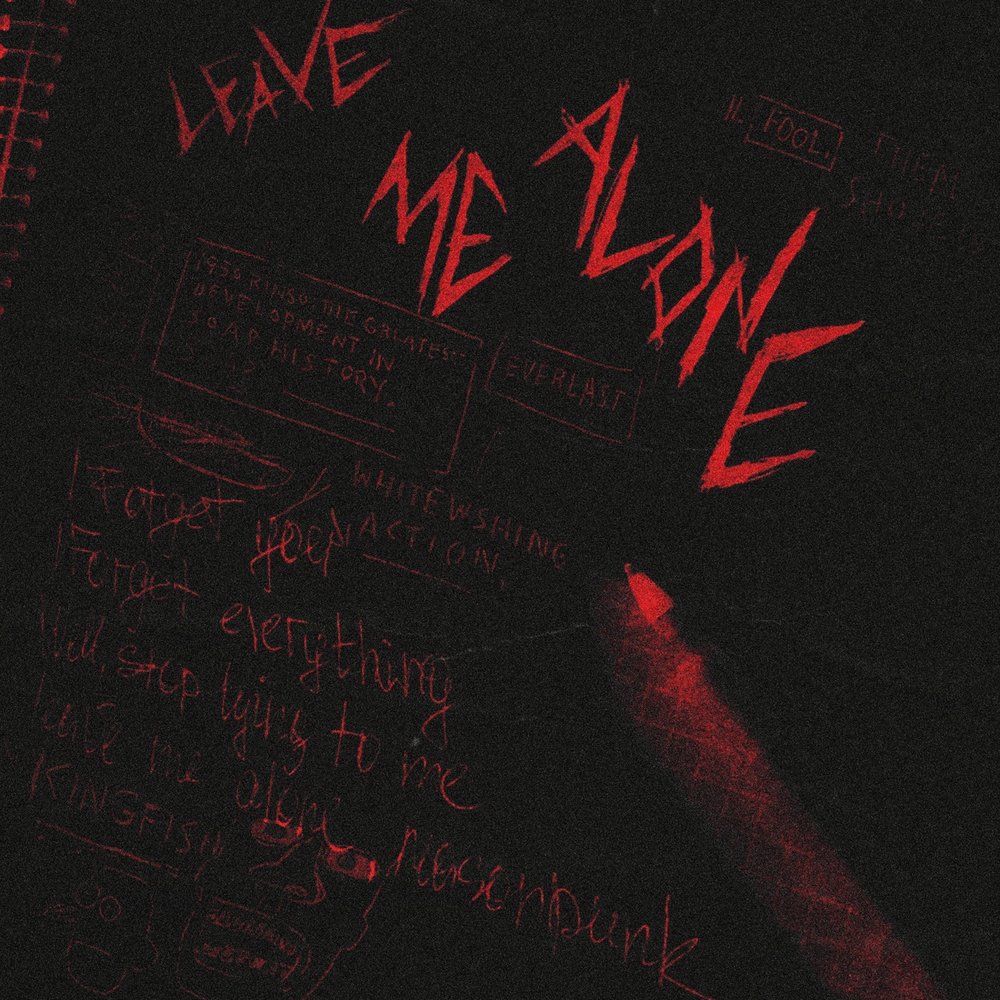 LEAVE
ME ALONE
IL FOOL.
1930 RINSO: THE GREATEST
DEVELOPMENT IN
SOAP HISTORY.
EVERLAST
WHITEWSHING
ACTION.
Forget you
Forget everything
Well, stop lying to me
leave me alone
KINGFISH
nersonpunk